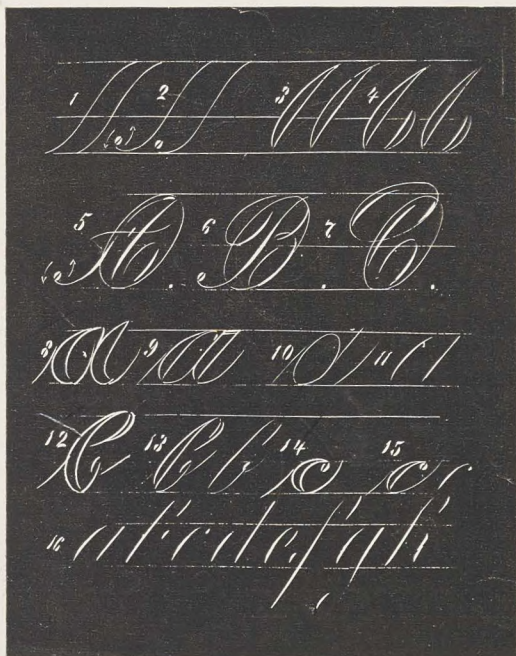 1 2 3 4
5 A. 6 B. 7 C.
8 a 9 a 10 11
12 C 13 14 c 15 c
16 a b c d e f g h